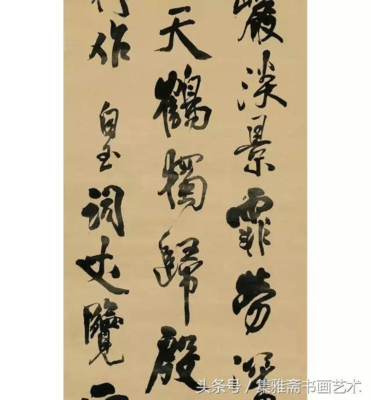 淡景霏勞
天鶴獨歸殿
作自玉詞丈覽
头条号 / 集雅斋书画艺术